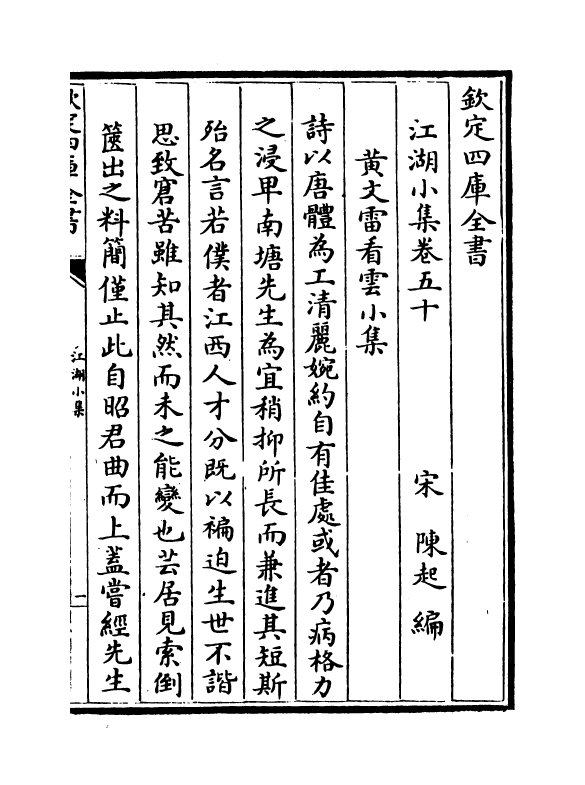 欽定四庫全書
江湖小集卷五十
宋 陳起 編
黃文雷看雲小集
詩以唐體為工清麗婉約自有佳處或者乃病格力
之浸甲南塘先生為宜稍抑所長而兼進其短斯
殆名言若僕者江西人才分既以褊迫生世不諧
思致窘苦雖知其然而未之能變也芸居見索倒
篋出之料簡僅止此自昭君曲而上蓋嘗經先生
欽定四庫全書
江湖小集
一